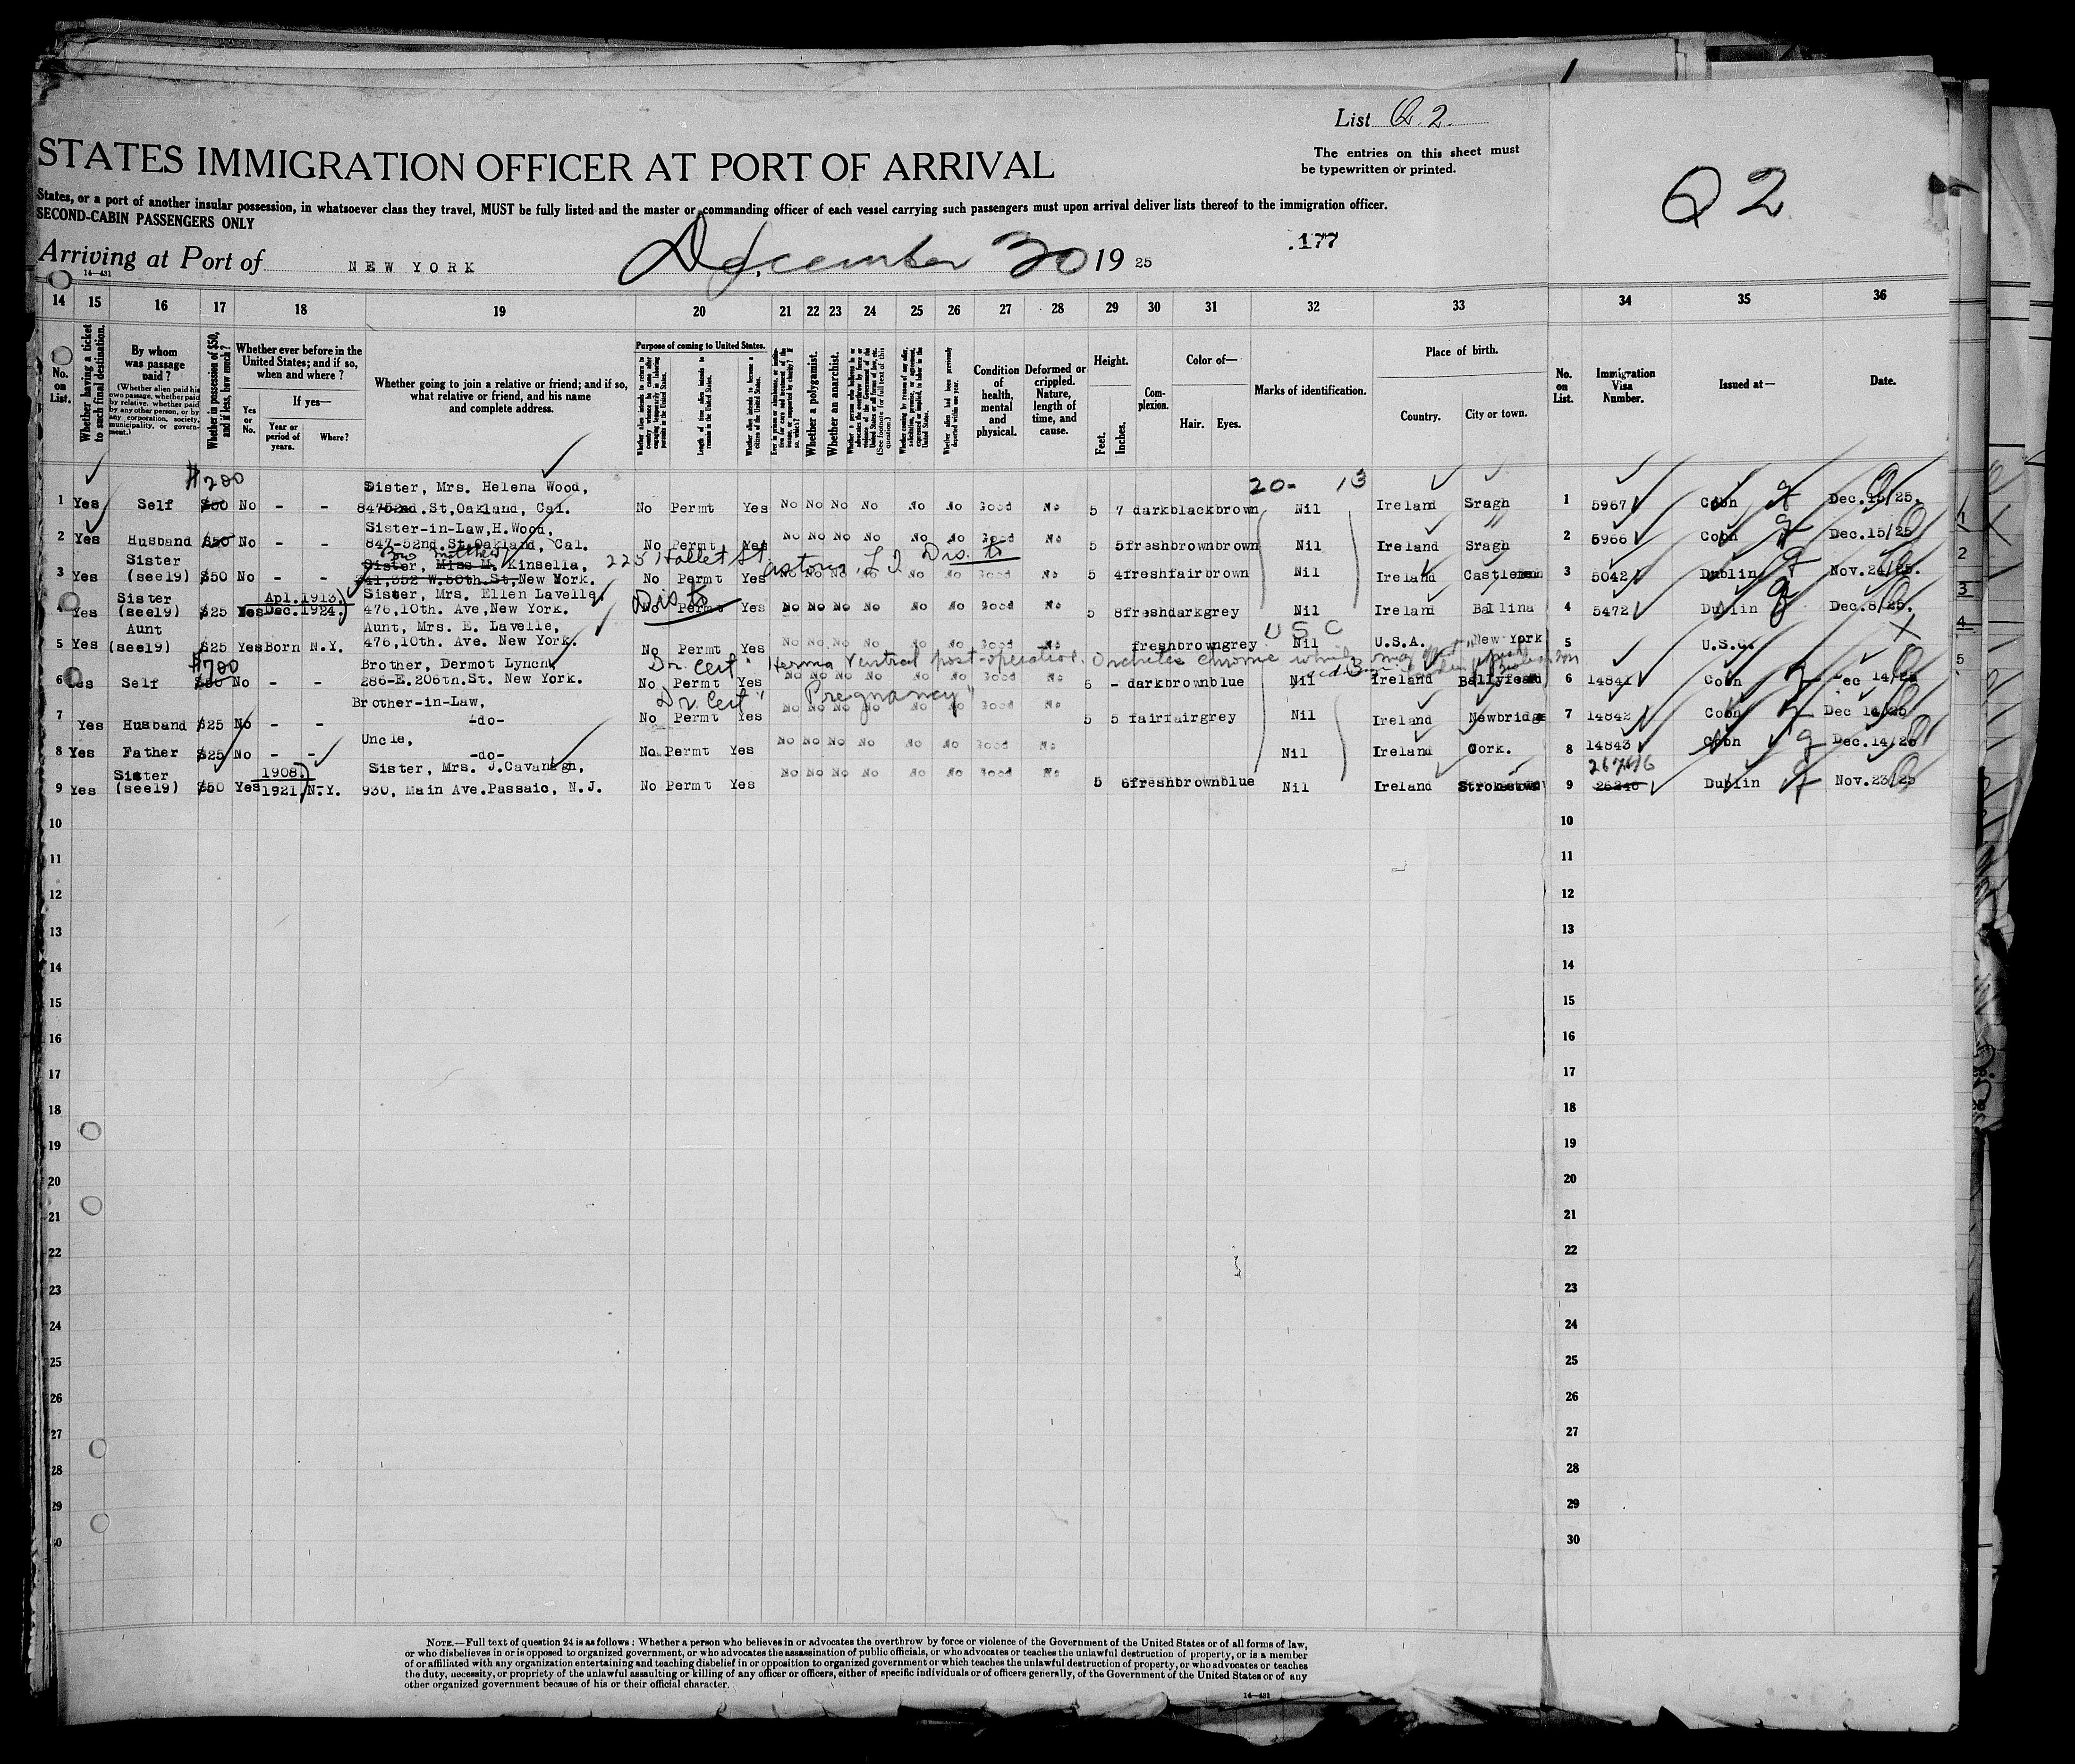 List Q. 2.
STATES IMMIGRATION OFFICER AT PORT OF ARRIVAL
The entries on this sheet must
be typewritten or printed.
Q 2
States, or a port of another insular possession, in whatsoever class they travel, MUST be fully listed and the master or commanding officer of each vessel carrying such passengers must upon arrival deliver lists thereof to the immigration officer.
SECOND-CABIN PASSENGERS ONLY
.177
Arriving at Port of NEW YORK December 30 19 25
14—431
14 15 16 17 18 19 20 21 22 23 24 25 26 27 28 29 30 31 32 33 34 35 36
No. on List.
Whether having a ticket to such final destination.
By whom was passage paid?
(Whether alien paid his own passage, whether paid by relative, whether paid by any other person, or by any corporation, society, municipality, or government.)
Whether in possession of $50, and if less, how much?
Whether ever before in the United States; and if so, when and where?
Yes or No.
If yes—
Year or period of years.
Where?
Whether going to join a relative or friend; and if so, what relative or friend, and his name and complete address.
Purpose of coming to United States.
Length of time alien intends to remain in the United States.
Whether alien intends to become a citizen of the United States.
Whether a polygamist.
Whether an anarchist.
(See footnote for full text of this question.)
Condition of health, mental and physical.
Deformed or crippled. Nature, length of time, and cause.
Height.
Feet.
Inches.
Complexion.
Color of—
Hair.
Eyes.
Marks of identification.
Place of birth.
Country.
City or town.
No. on List.
Immigration Visa Number.
Issued at—
Date.
$200
20- 13
Sister, Mrs. Helena Wood,
1 Yes Self $50 No - - 847 52nd. St, Oakland, Cal. No Permt Yes No No No No No No Good No 5 7 dark black brown Nil Ireland Sragh 1 5967 Cobh Dec. 15/25.
Sister-in-Law, H. Wood,
2 Yes Husband $50 No - - 847-52nd. St. Oakland, Cal. No Permt Yes No No No No No No Good No 5 5 fresh brown brown Nil Ireland Sragh 2 5966 Cobh Dec. 15/25
Bro Matthew 2251 Hallet St Astoria L I Dis. to
Sister, Miss M. Kinsella,
3 Yes Sister (see19) $50 No - - 341, 352 W. 50th. St, New York. No Permt Yes No No No No No No Good No 5 4 fresh fair brown Nil Ireland 3 5042 Dublin Nov. 24/25.
Apl. 1913. Sister, Mrs. Ellen Lavelle, Dis to
4 Yes Sister (see19) $25 Yes Dec. 1924. 476, 10th. Ave, New York. No Permt Yes No No No No No No Good No 5 8 fresh dark grey Nil Ireland Ballina 4 5472 Dublin Dec. 8/25.
Aunt, Mrs. E. Lavelle, U S C
5 Yes Aunt (see19) $25 Yes Born N.Y. 476, 10th. Ave. New York. No Permt Yes No No No No No No Good No fresh brown grey Nil U.S.A. New York 5 U.S.C.
$700
Dr. Cert "Hernia Ventral post-operation. Orchitis chronic which may affect
Brother, Dermot Lynch
6 Yes Self $50 No - - 286-E. 206th. St. New York. No Permt Yes No No No No No No Good No 5 - dark brown blue Nil Ireland 6 14841 Cobh Dec 14/25
Dr. Cert "Pregnancy"
Brother-in-Law,
7 Yes Husband $25 No - - -do- No Permt Yes No No No No No No Good No 5 5 fair fair grey Nil Ireland Newbridge 7 14842 Cobh Dec 14/25
Uncle,
8 Yes Father $25 No - - -do- No Permt Yes No No No No No No Good No Nil Ireland Cork. 8 14843 Cobh Dec. 14/25
1908. Sister, Mrs. J. Cavanagh, 26746
9 Yes Sister (see19) $50 Yes 1921. N.Y. 930, Main Ave. Passaic, N.J. No Permt Yes No No No No No No Good No 5 6 fresh brown blue Nil Ireland Strokestown 9 Dublin Nov. 23/25
10 10
11 11
12 12
13 13
14 14
15 15
16 16
17 17
18 18
19 19
20 20
21 21
22 22
23 23
24 24
25 25
26 26
27 27
28 28
29 29
30 30
NOTE.—Full text of question 24 is as follows: Whether a person who believes in or advocates the overthrow by force or violence of the Government of the United States or of all forms of law,
or who disbelieves in or is opposed to organized government, or who advocates the assassination of public officials, or who advocates or teaches the unlawful destruction of property, or is a member
of or affiliated with any organization entertaining and teaching disbelief in or opposition to organized government or which teaches the unlawful destruction of property, or who advocates or teaches
the duty, necessity, or propriety of the unlawful assaulting or killing of any officer or officers, either of specific individuals or of officers generally, of the Government of the United States or of any
other organized government because of his or their official character.
14—431